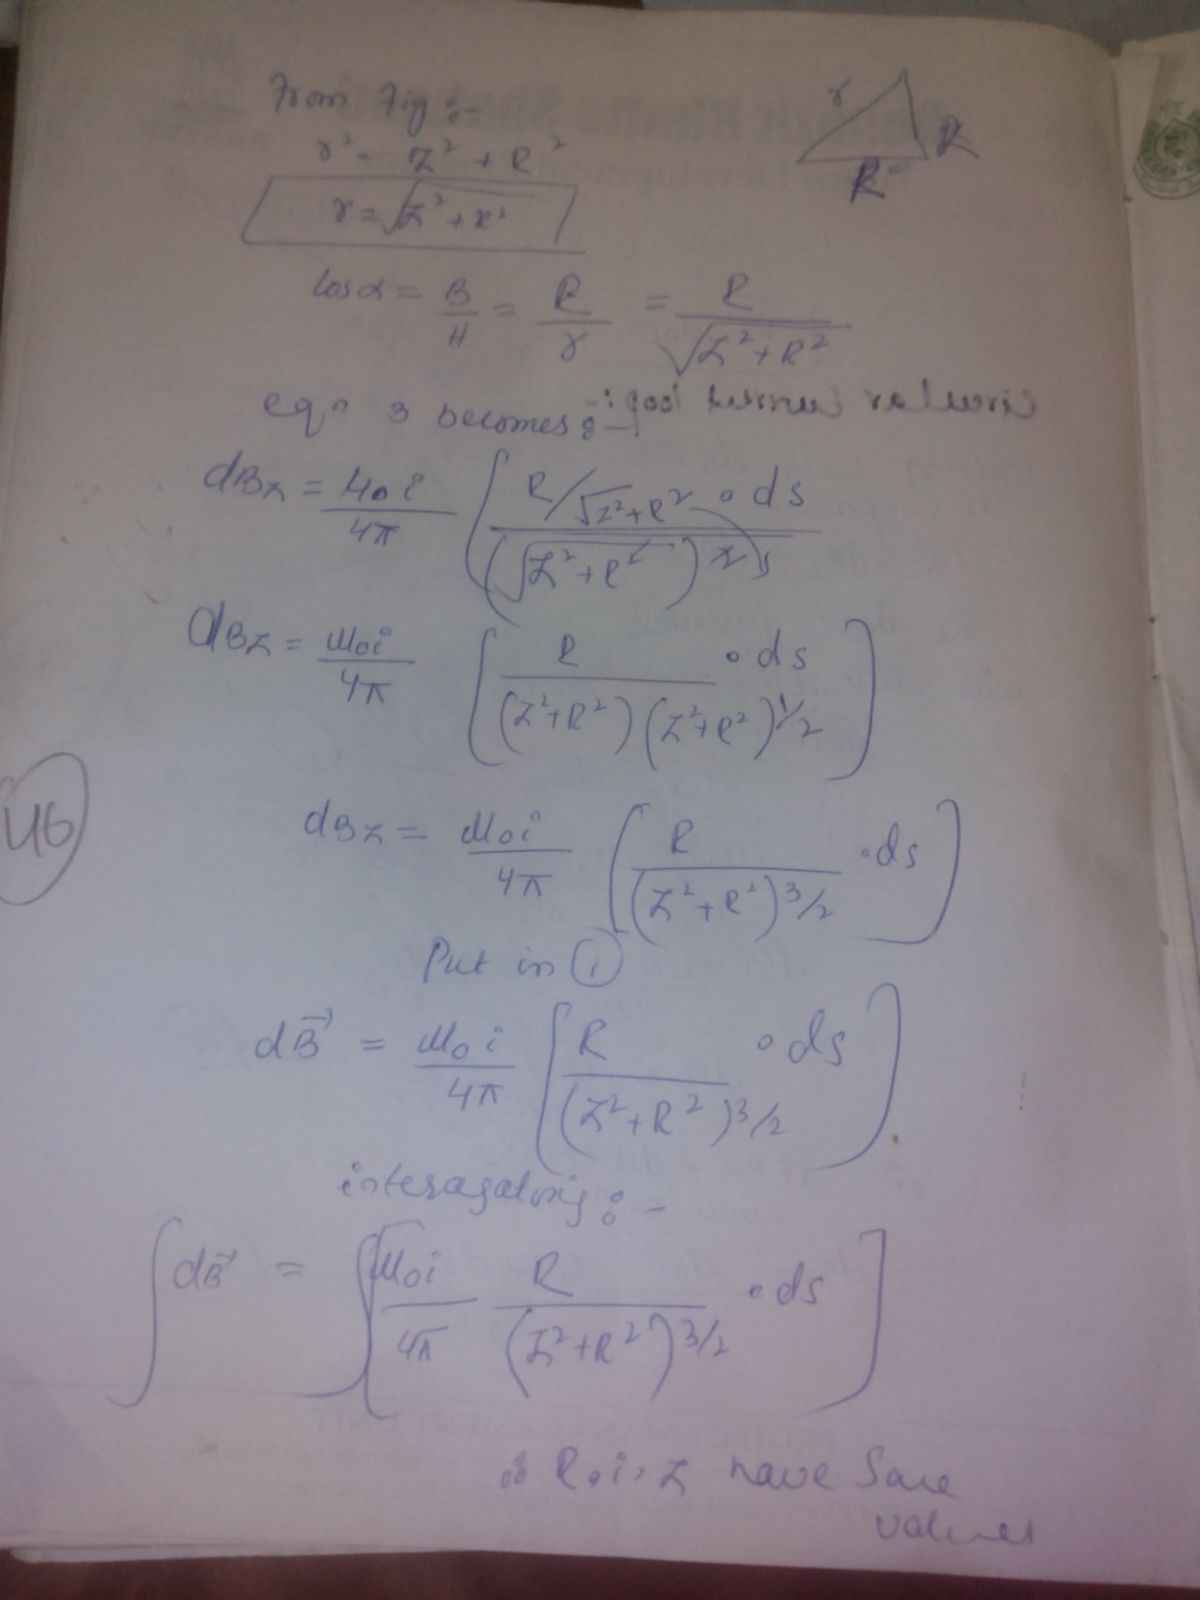 From Fig :-
r² = Z² + R²
r = √Z² + R²
r
R
R
cosα = B/H = R/r = R/√Z² + R²
eqn 3 becomes :-
Circular Current loop :-
dBz = μ₀i/4π [R/√Z²+R² . ds / (√Z²+R²)²]
dBz = μ₀i/4π [R / (Z²+R²)(Z²+R²)^1/2 . ds]
dBz = μ₀i/4π [R / (Z²+R²)^3/2 . ds]
46
Put in ①
dB⃗ = μ₀i/4π [R / (Z²+R²)^3/2 . ds]
interagating :-
∫dB⃗ = ∫[μ₀i/4π R / (Z²+R²)^3/2 . ds]
∴ R, i, Z have Same
values